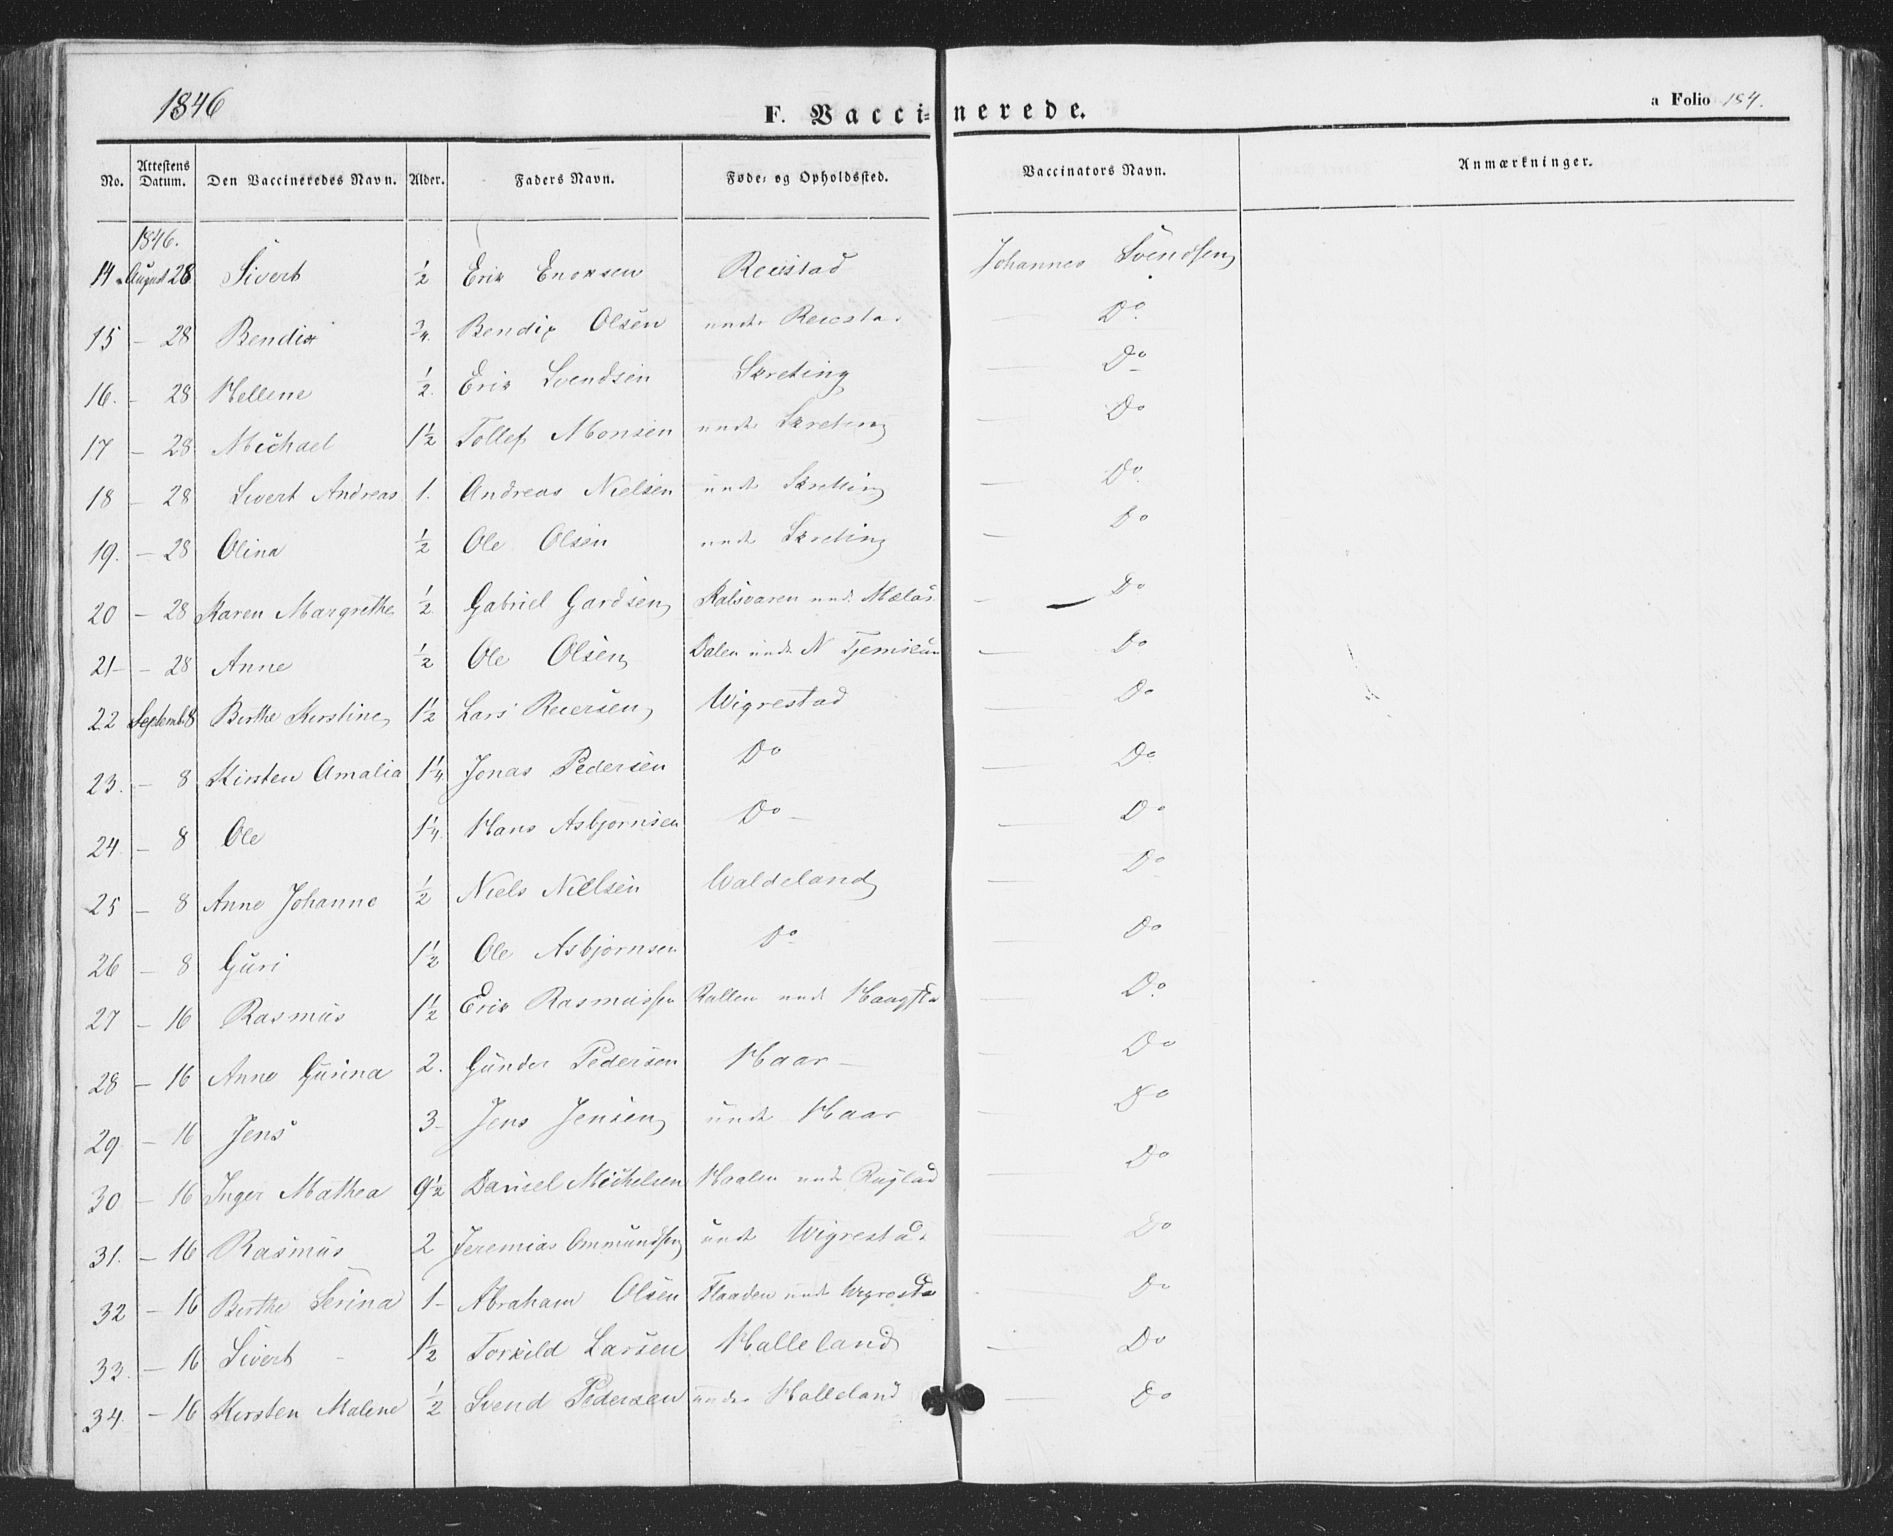 1846
F. Vaccinerede.
a Folio 184.
No. Attestens Datum. Den Vaccineredes Navn. Alder. Faders Navn. Føde- og Opholdssted. Vaccinators Navn. Anmærkninger.
1846.
14. August 28 Sivert 1/2 Erik Enoksen Reiestad Johannes Svendsen
15 – 28 Bendix 3/4. Bendix Olsen unde — Do
16. – 28 Hellene 1/2. Erik Svendsen Skreting — Do
17 – 28 Michael 1 1/2 Tollef Monsen unde Skreting — Do
18 – 28 Sivert Andreas 1. Andreas Nielsen unde Skretting — Do
19. – 28 Olina 1/2 Ole Olsen unde Skreting — Do
20 – 28 Karen Margrethe 1/2 Gabriel Gardsen und. — Do
21 – 28 Anne 1/2 Ole Olsen Dalen unde N — Do
22 Septemb. 8 Berthe Kirstine 1 1/2 Lars Reiersen Wigrestad — Do
23. – 8 Kirsten Amalia 1 1/4 Jonas Pedersen Do — Do
24 – 8 Ole 1 1/4. Hans Asbjørnsen Do – — Do
25 – 8 Anne Johanne 1/2 Niels Nielsen Waldeland — Do
26 – 8 Guri 1 1/2 Ole Asbjørnsen Do — Do
27 – 16 Rasmus 1 1/2 Erik Rasmussen unde — Do
28 – 16 Anne Gurina 2. Gunder Pedersen Haar – — Do
29. – 16 Jens 3 – Jens Jensen unde Haar — Do
30 – 16 Inger Mathea 9 1/2 Daniel Michelsen Haalen unde — Do
31. – 16 Rasmus 2 Jeremias Ommundsen unde Wigrestad — Do
32 – 16 Berthe Serina 1 – Abraham Olsen Flaaden unde Wigresta Do
33. – 16 Sivert 1 1/2 Torkild Larsen Halleland — Do
34. – 16 Kirsten Malene 1/2 Svend Pedersen under Halleland — Do